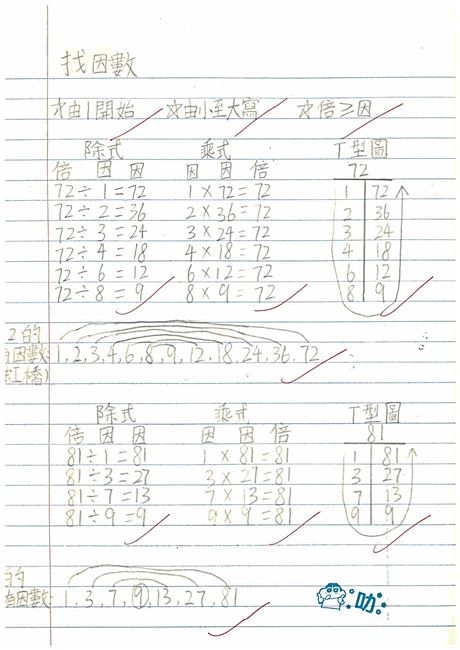 找因數
☆由1開始 ☆由小至大寫 ☆倍≥因
除式 乘式 T型圖
倍 因 因 因 因 倍 72
72÷1=72 1×72=72 1 72
72÷2=36 2×36=72 2 36
72÷3=24 3×24=72 3 24
72÷4=18 4×18=72 4 18
72÷6=12 6×12=72 6 12
72÷8=9 8×9=72 8 9
2的
因數
1,2,3,4,6,8,9,12,18,24,36,72
虹橋)
除式 乘式 T型圖
倍 因 因 因 因 倍 81
81÷1=81 1×81=81 1 81
81÷3=27 3×27=81 3 27
81÷7=13 7×13=81 7 13
81÷9=9 9×9=81 9 9
的
有因數: 1,3,7,9,13,27,81
叻